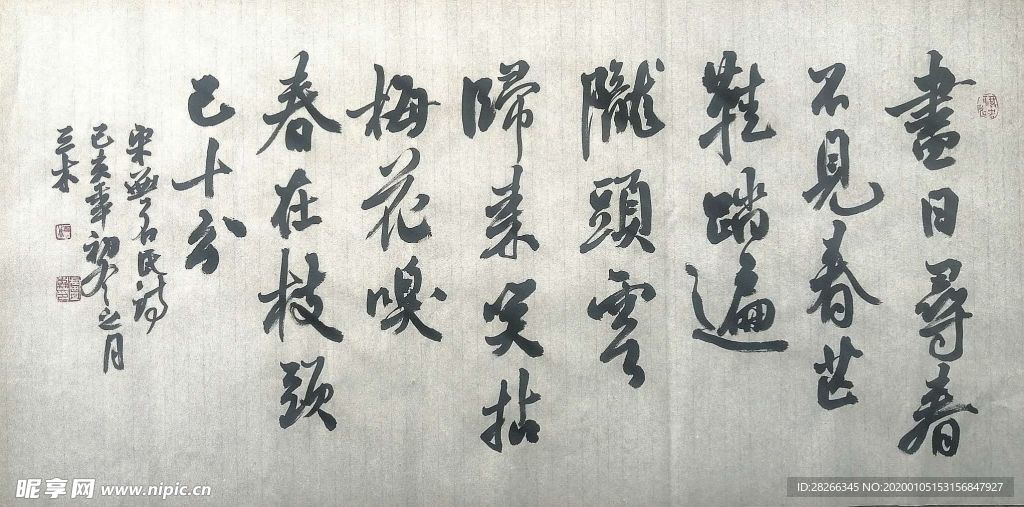 盡日尋春
不見春芒
鞋踏遍
隴頭雲
歸來笑拈
梅花嗅
春在枝頭
已十分
宋無名氏詩
己亥年初冬之月
三木
昵享网 www.nipic.cn
ID:28266345 NO:20200105153156847927